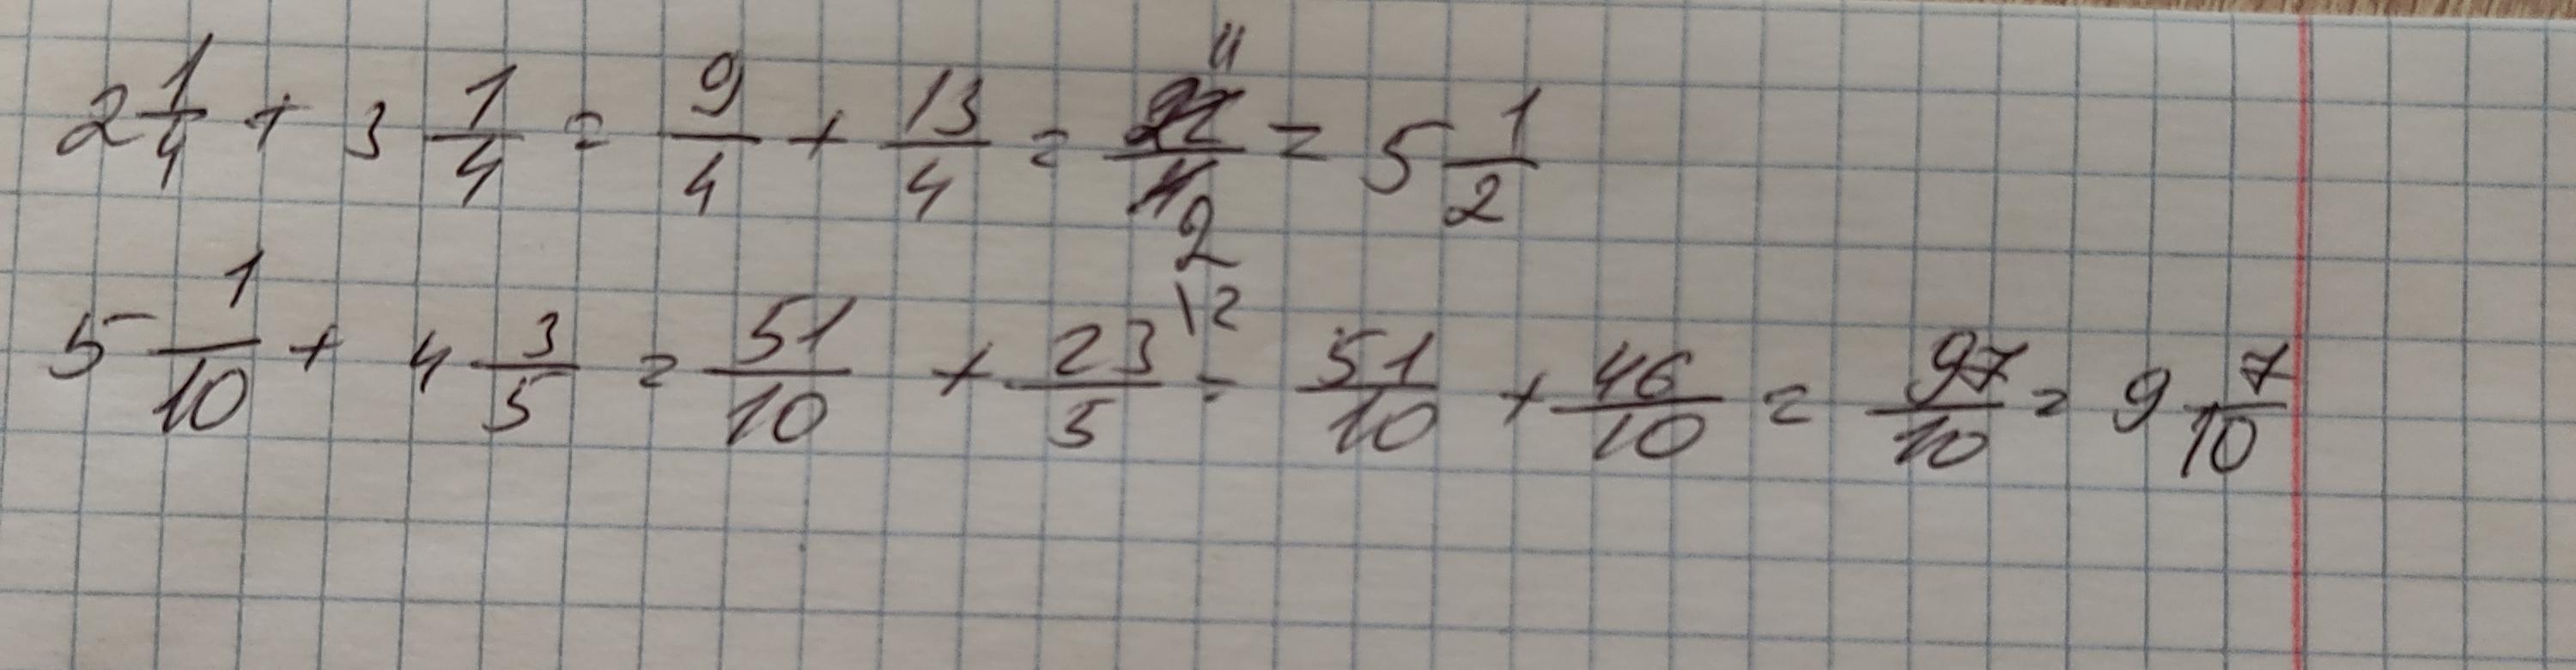 2 1/4 + 3 1/4 = 9/4 + 13/4 = 22/4 11/2 = 5 1/2
5 1/10 + 4 3/5 = 51/10 + 23/5 \2 = 51/10 + 46/10 = 97/10 = 9 7/10